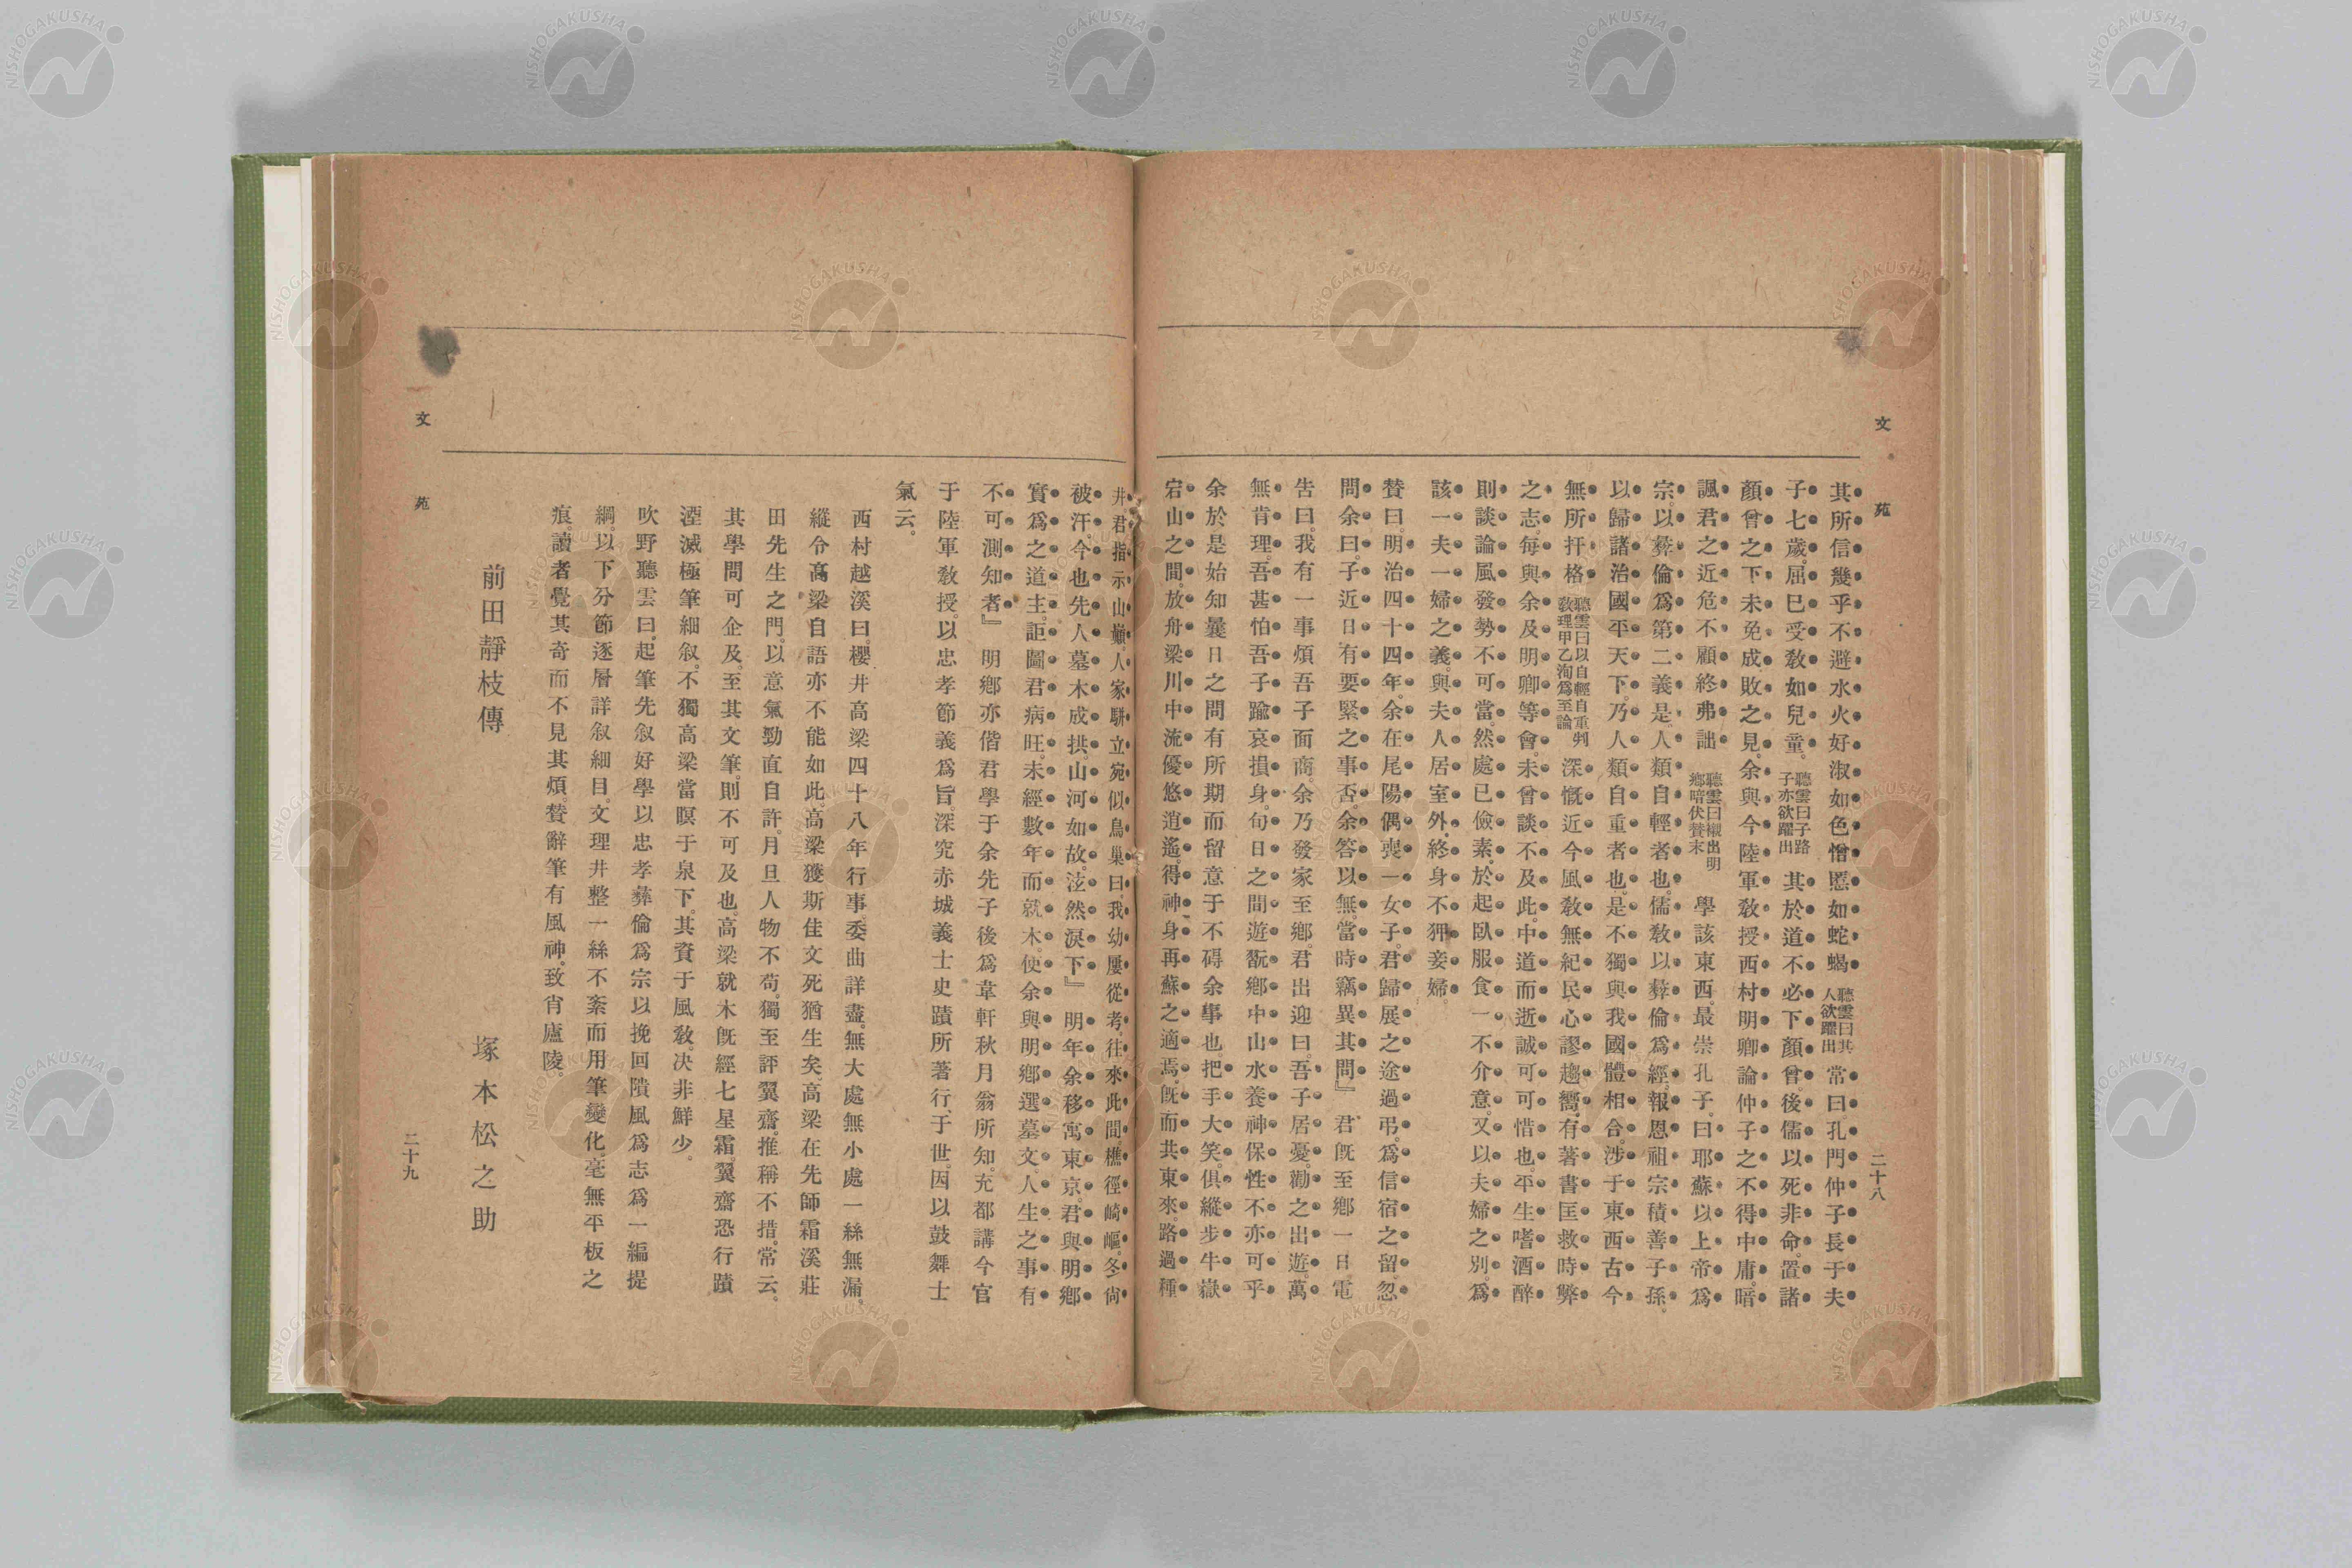 文苑
二十八
其所信幾乎不避水火好淑如色憎慝如蛇蝎聽雲曰其人欲躍出常曰孔門仲子長于夫
子七歲屈已受敎如兒童聽雲曰子路子亦欲躍出其於道不必下顏曾後儒以死非命置諸
顏曾之下未免成敗之見余與今陸軍敎授西村明卿論仲子之不得中庸暗
諷君之近危不顧終弗詘聽雲曰襯出明鄕暗伏贊末學該東西最崇孔子曰耶蘇以上帝爲
宗以彜倫爲第二義是人類自輕者也儒敎以彜倫爲經報恩祖宗積善子孫
以歸諸治國平天下乃人類自重者也是不獨與我國體相合涉于東西古今
無所扞格聽雲曰以自輕自重判敎理甲乙洵爲至論深慨近今風敎無紀民心謬趨嚮有著書匡救時弊
之志每與余及明卿等會未曾談不及此中道而逝誠可可惜也平生嗜酒醉
則談論風發勢不可當然處已儉素於起臥服食一不介意又以夫婦之別爲
該一夫一婦之義與夫人居室外終身不狎妾婦
贊曰明治四十四年余在尾陽偶喪一女子君歸展之途過弔爲信宿之留忽
問余曰子近日有要緊之事否余答以無當時竊異其問』君旣至鄕一日電
告曰我有一事煩吾子面商余乃發家至鄕君出迎曰吾子居憂勸之出遊萬
無肯理吾甚怕吾子踰哀損身旬日之間遊翫鄕中山水養神保性不亦可乎
余於是始知曩日之問有所期而留意于不碍余事也把手大笑俱縱步牛嶽
宕山之間放舟梁川中流優悠逍遙得神身再蘇之適焉旣而共東來路過種
井君指示山巓人家駢立宛似鳥巢曰我幼屢從考往來此間樵徑崎嶇冬尙
被汗今也先人墓木成拱山河如故泫然淚下』明年余移寓東京君與明鄕
實爲之道主詎圖君病旺未經數年而就木使余與明鄕選墓文人生之事有
不可測知者』明鄕亦偕君學于余先子後爲韋軒秋月翁所知充都講今官
于陸軍敎授以忠孝節義爲旨深究赤城義士史蹟所著行于世因以鼓舞士
氣云。
西村越溪曰櫻井高梁四十八年行事委曲詳盡無大處無小處一絲無漏
縱令高梁自語亦不能如此高梁獲斯佳文死猶生矣高梁在先師霜溪莊
田先生之門以意氣勁直自許月旦人物不苟獨至評翼齋推稱不措常云
其學問可企及至其文筆則不可及也高梁就木旣經七星霜翼齋恐行蹟
湮滅極筆細叙不獨高梁當瞑于泉下其資于風敎決非鮮少。
吹野聽雲曰起筆先叙好學以忠孝彝倫爲宗以挽回隤風爲志爲一編提
綱以下分節逐層詳叙細目文理井整一絲不紊而用筆變化毫無平板之
痕讀者覺其奇而不見其煩贊辭筆有風神致肖廬陵。
前田靜枝傳
塚本松之助
文苑
二十九